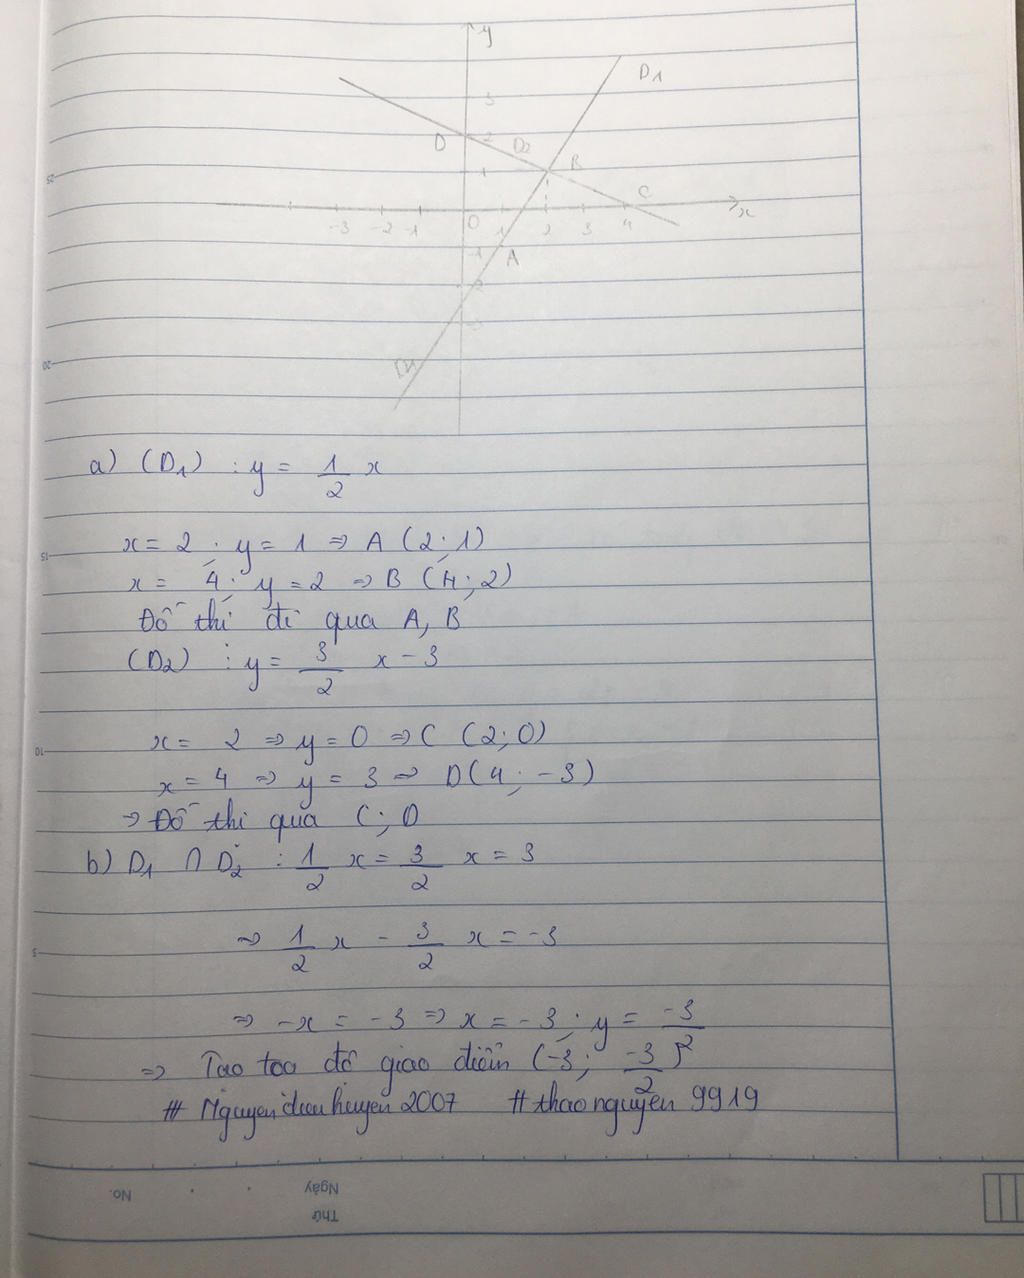 y
D1
3
D 2 D2 B
1
C
-3 -2 -1 O 1 2 3 4 x
-1 A
-2
-3
a) (D1) : y = 1/2 x
x = 2 ; y = 1 => A (2; 1)
x = 4; y = 2 => B (4; 2)
Đồ thị đi qua A, B
(D2) : y = 3/2 x - 3
x = 2 => y = 0 => C (2; 0)
x = 4 => y = 3 => D (4; -3)
=> Đồ thi qua C; D
b) D1 ∩ D2 : 1/2 x = 3/2 x = 3
=> 1/2 x - 3/2 x = -3
=> -x = -3 => x = -3; y = -3/2
=> Tao toa độ giao điểm (-3; -3/2)
# Nguyen dieu huyen 2007 # thao nguyên 9919
25
20
15
10
5
No.
Ngày
Thứ